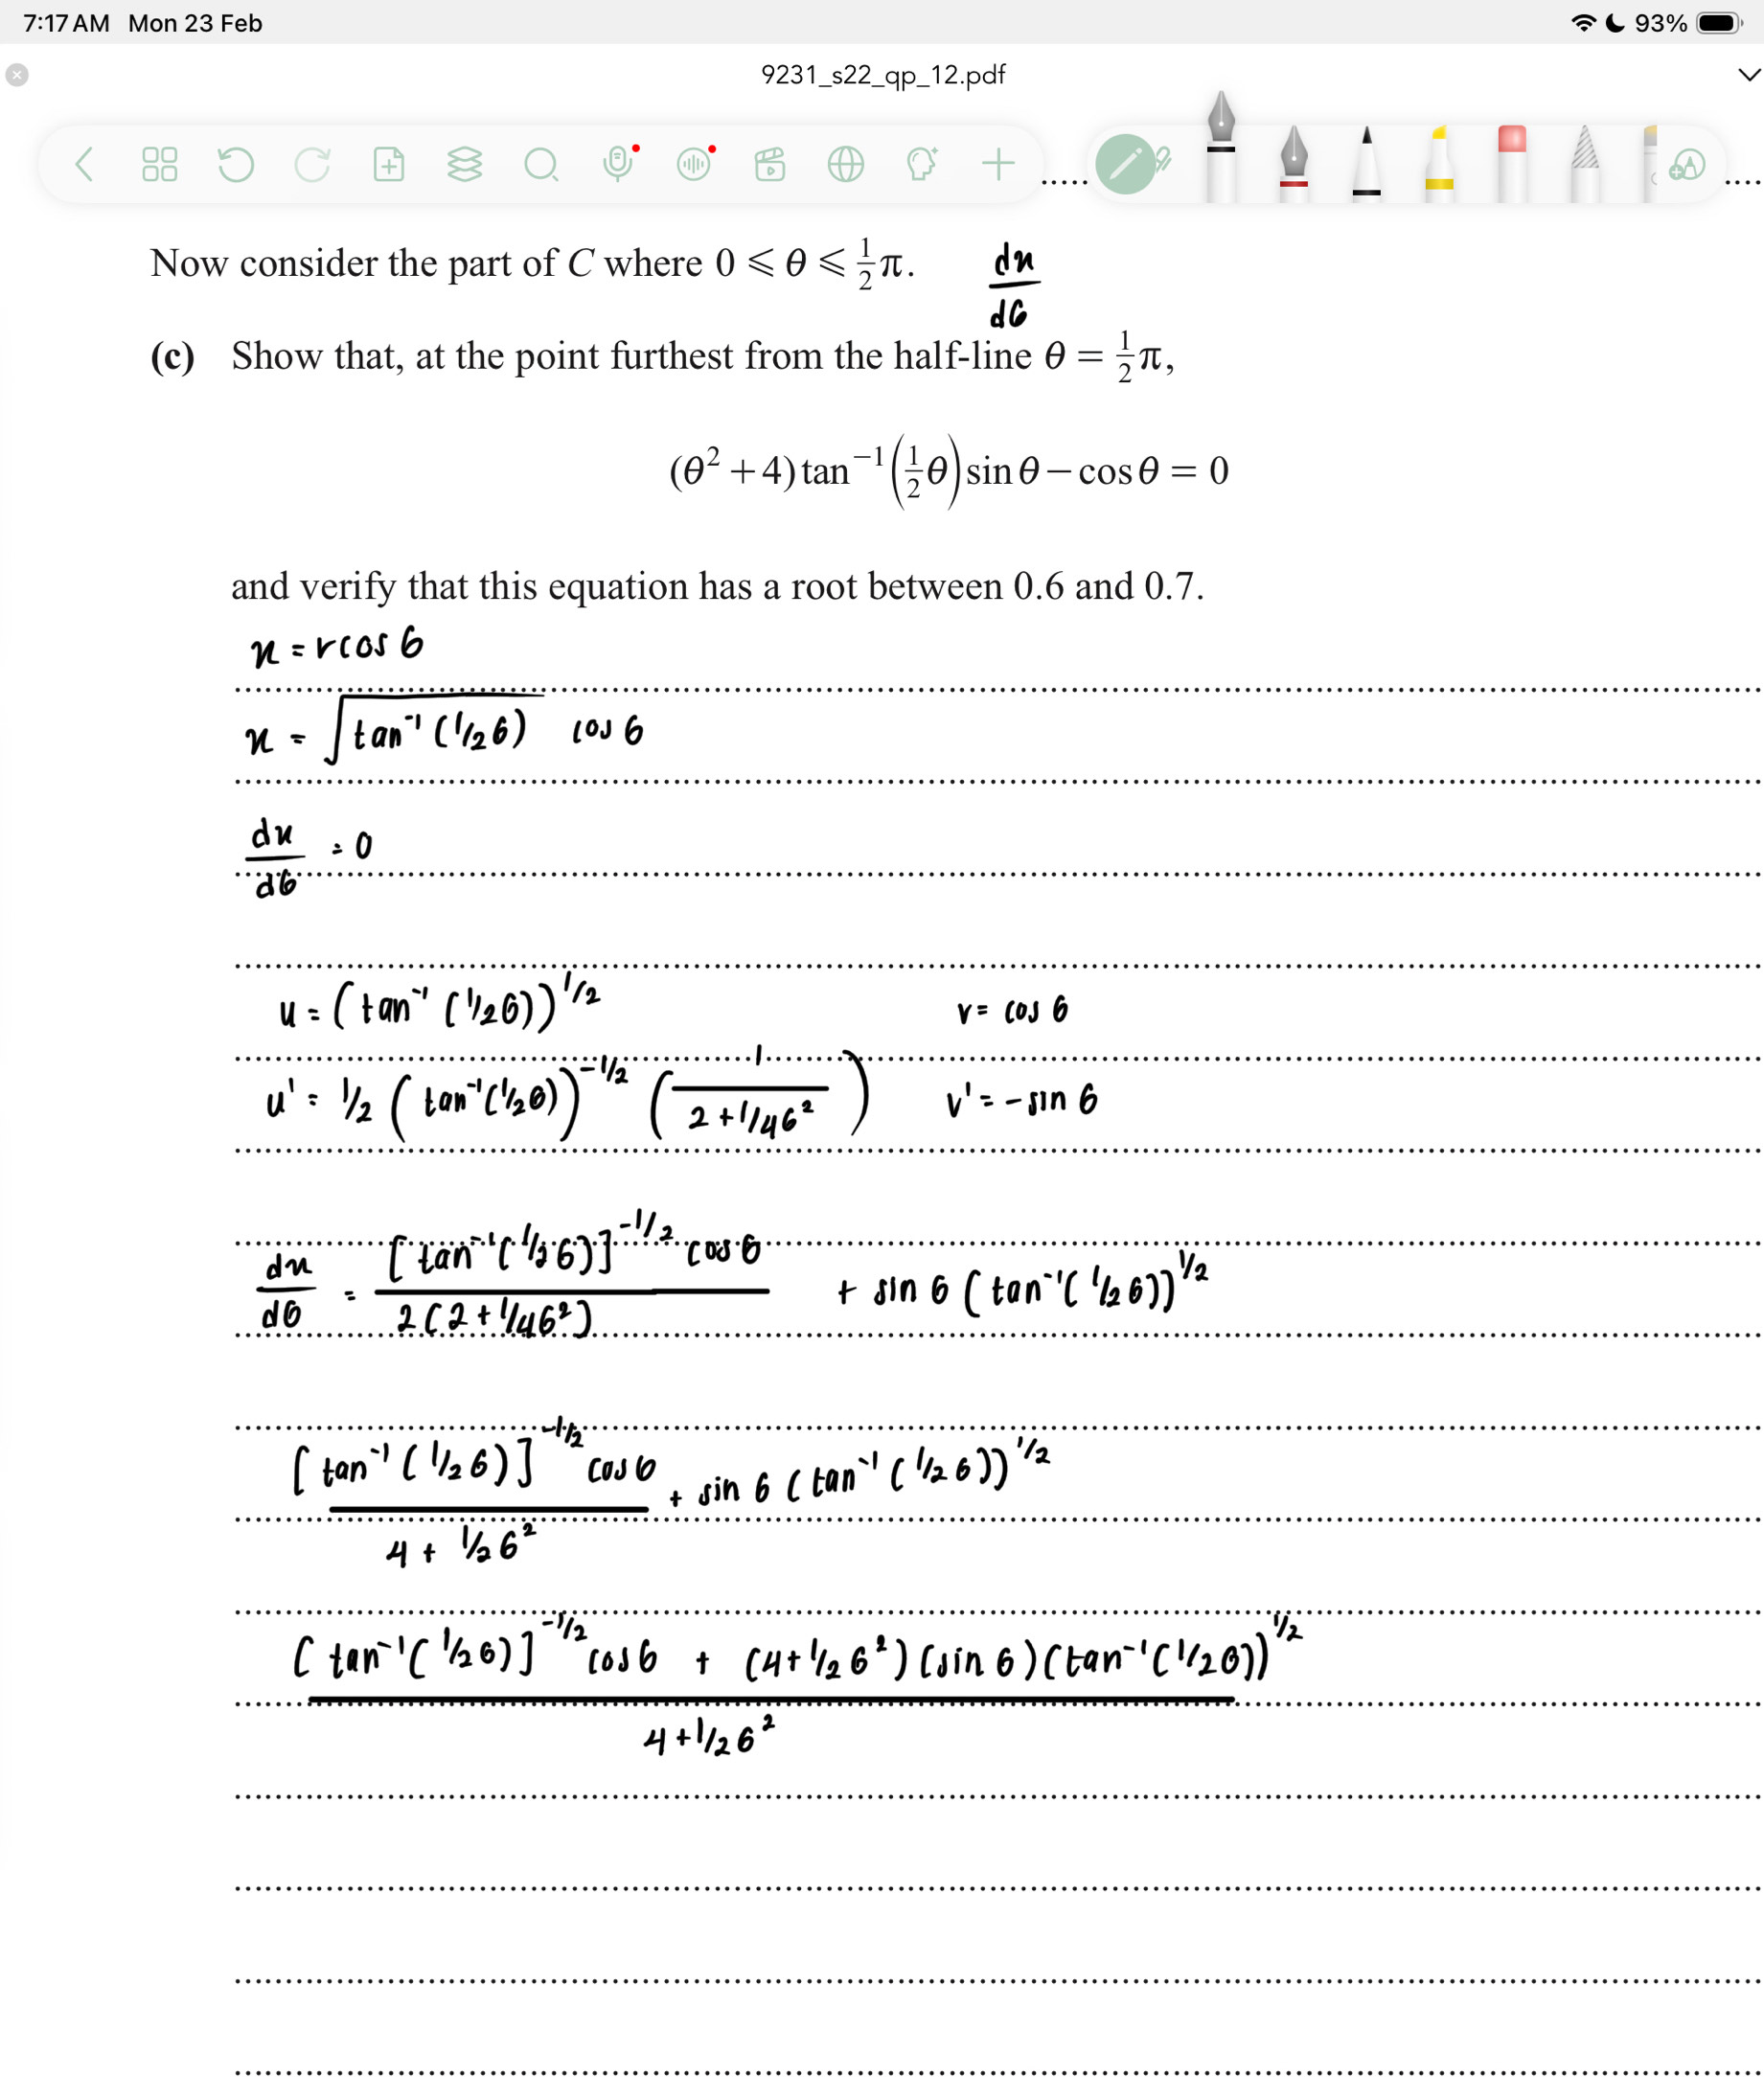 7:17 AM Mon 23 Feb 93%
9231_s22_qp_12.pdf
Now consider the part of C where 0 ⩽ θ ⩽ ½π. dx/dθ
(c) Show that, at the point furthest from the half-line θ = ½π,
(θ² + 4) tan⁻¹(½θ) sin θ − cos θ = 0
and verify that this equation has a root between 0.6 and 0.7.
x = r cos θ
x = √(tan⁻¹(1/2θ)) cos θ
dx/dθ = 0
u = (tan⁻¹(1/2θ))^1/2 v = cos θ
u' = 1/2 (tan⁻¹(1/2θ))^-1/2 (1/(2 + 1/4θ²)) v' = -sin θ
dx/dθ = [tan⁻¹(1/2θ)]^-1/2 cos θ / 2(2 + 1/4θ²) + sin θ (tan⁻¹(1/2θ))^1/2
[tan⁻¹(1/2θ)]^-1/2 cos θ / (4 + 1/2θ²) + sin θ (tan⁻¹(1/2θ))^1/2
[tan⁻¹(1/2θ)]^-1/2 cos θ + (4 + 1/2θ²)(sin θ)(tan⁻¹(1/2θ))^1/2
4 + 1/2θ²